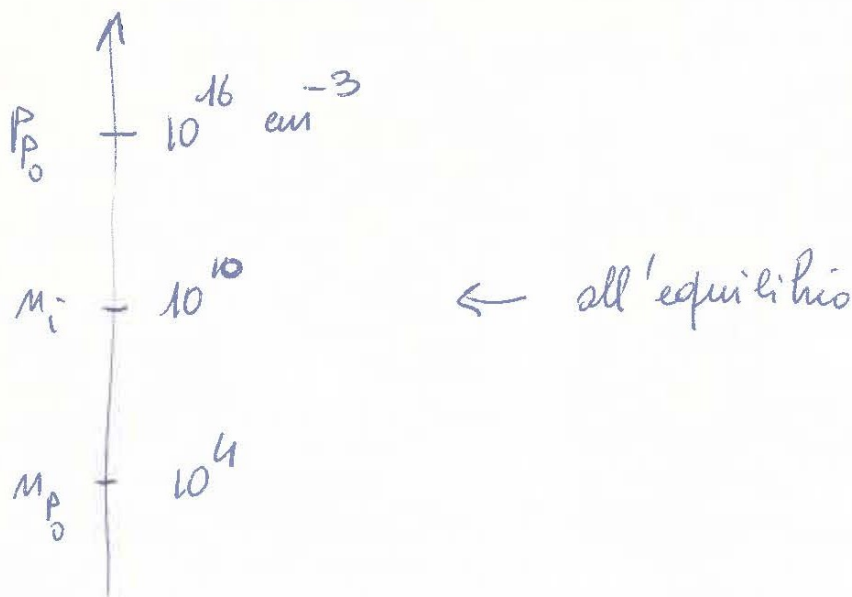 p_{p_0} 10^{16} cm^{-3}
n_i 10^{10} ← all'equilibrio
n_{p_0} 10^4